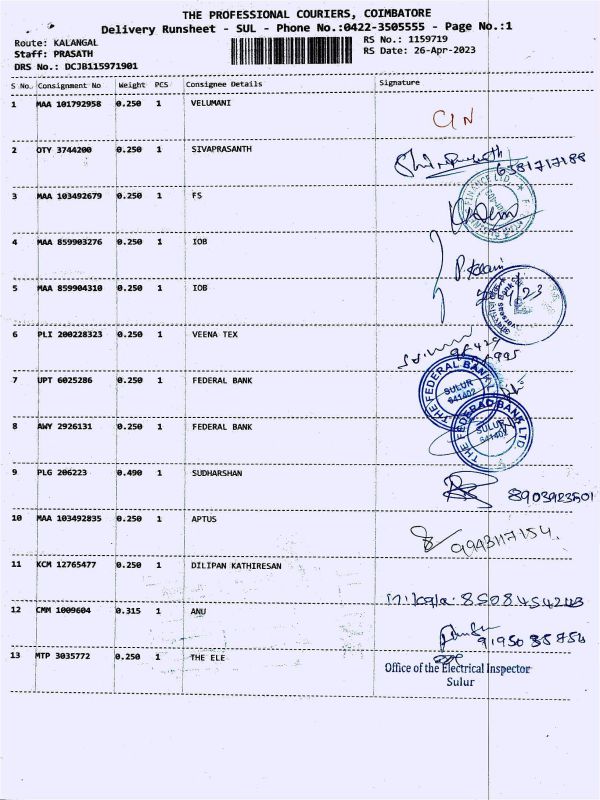 THE PROFESSIONAL COURIERS, COIMBATORE
Delivery Runsheet - SUL - Phone No.:0422-3505555 - Page No.:1
Route: KALANGAL
RS No.: 1159719
Staff: PRASATH
RS Date: 26-Apr-2023
DRS No.: DCJB115971901
S No. Consignment No Weight PCS Consignee Details Signature
1 MAA 101792958 0.250 1 VELUMANI
2 OTY 3744200 0.250 1 SIVAPRASANTH
6381717188
3 MAA 103492679 0.250 1 FS
FINANCE LTD.
4 MAA 859903276 0.250 1 IOB
5 MAA 859904310 0.250 1 IOB
6 PLI 200228323 0.250 1 VEENA TEX
7 UPT 6025286 0.250 1 FEDERAL BANK
THE FEDERAL BANK
SULUR
641402
8 AWY 2926131 0.250 1 FEDERAL BANK
THE FEDERAL BANK LTD
SULUR
641402
9 PLG 206223 0.490 1 SUDHARSHAN
8903923501
10 MAA 103492835 0.250 1 APTUS
9943117154.
11 KCM 12765477 0.250 1 DILIPAN KATHIRESAN
8508454243
12 CMM 1009604 0.315 1 ANU
13 MTP 3035772 0.250 1 THE ELE
Office of the Electrical Inspector
Sulur